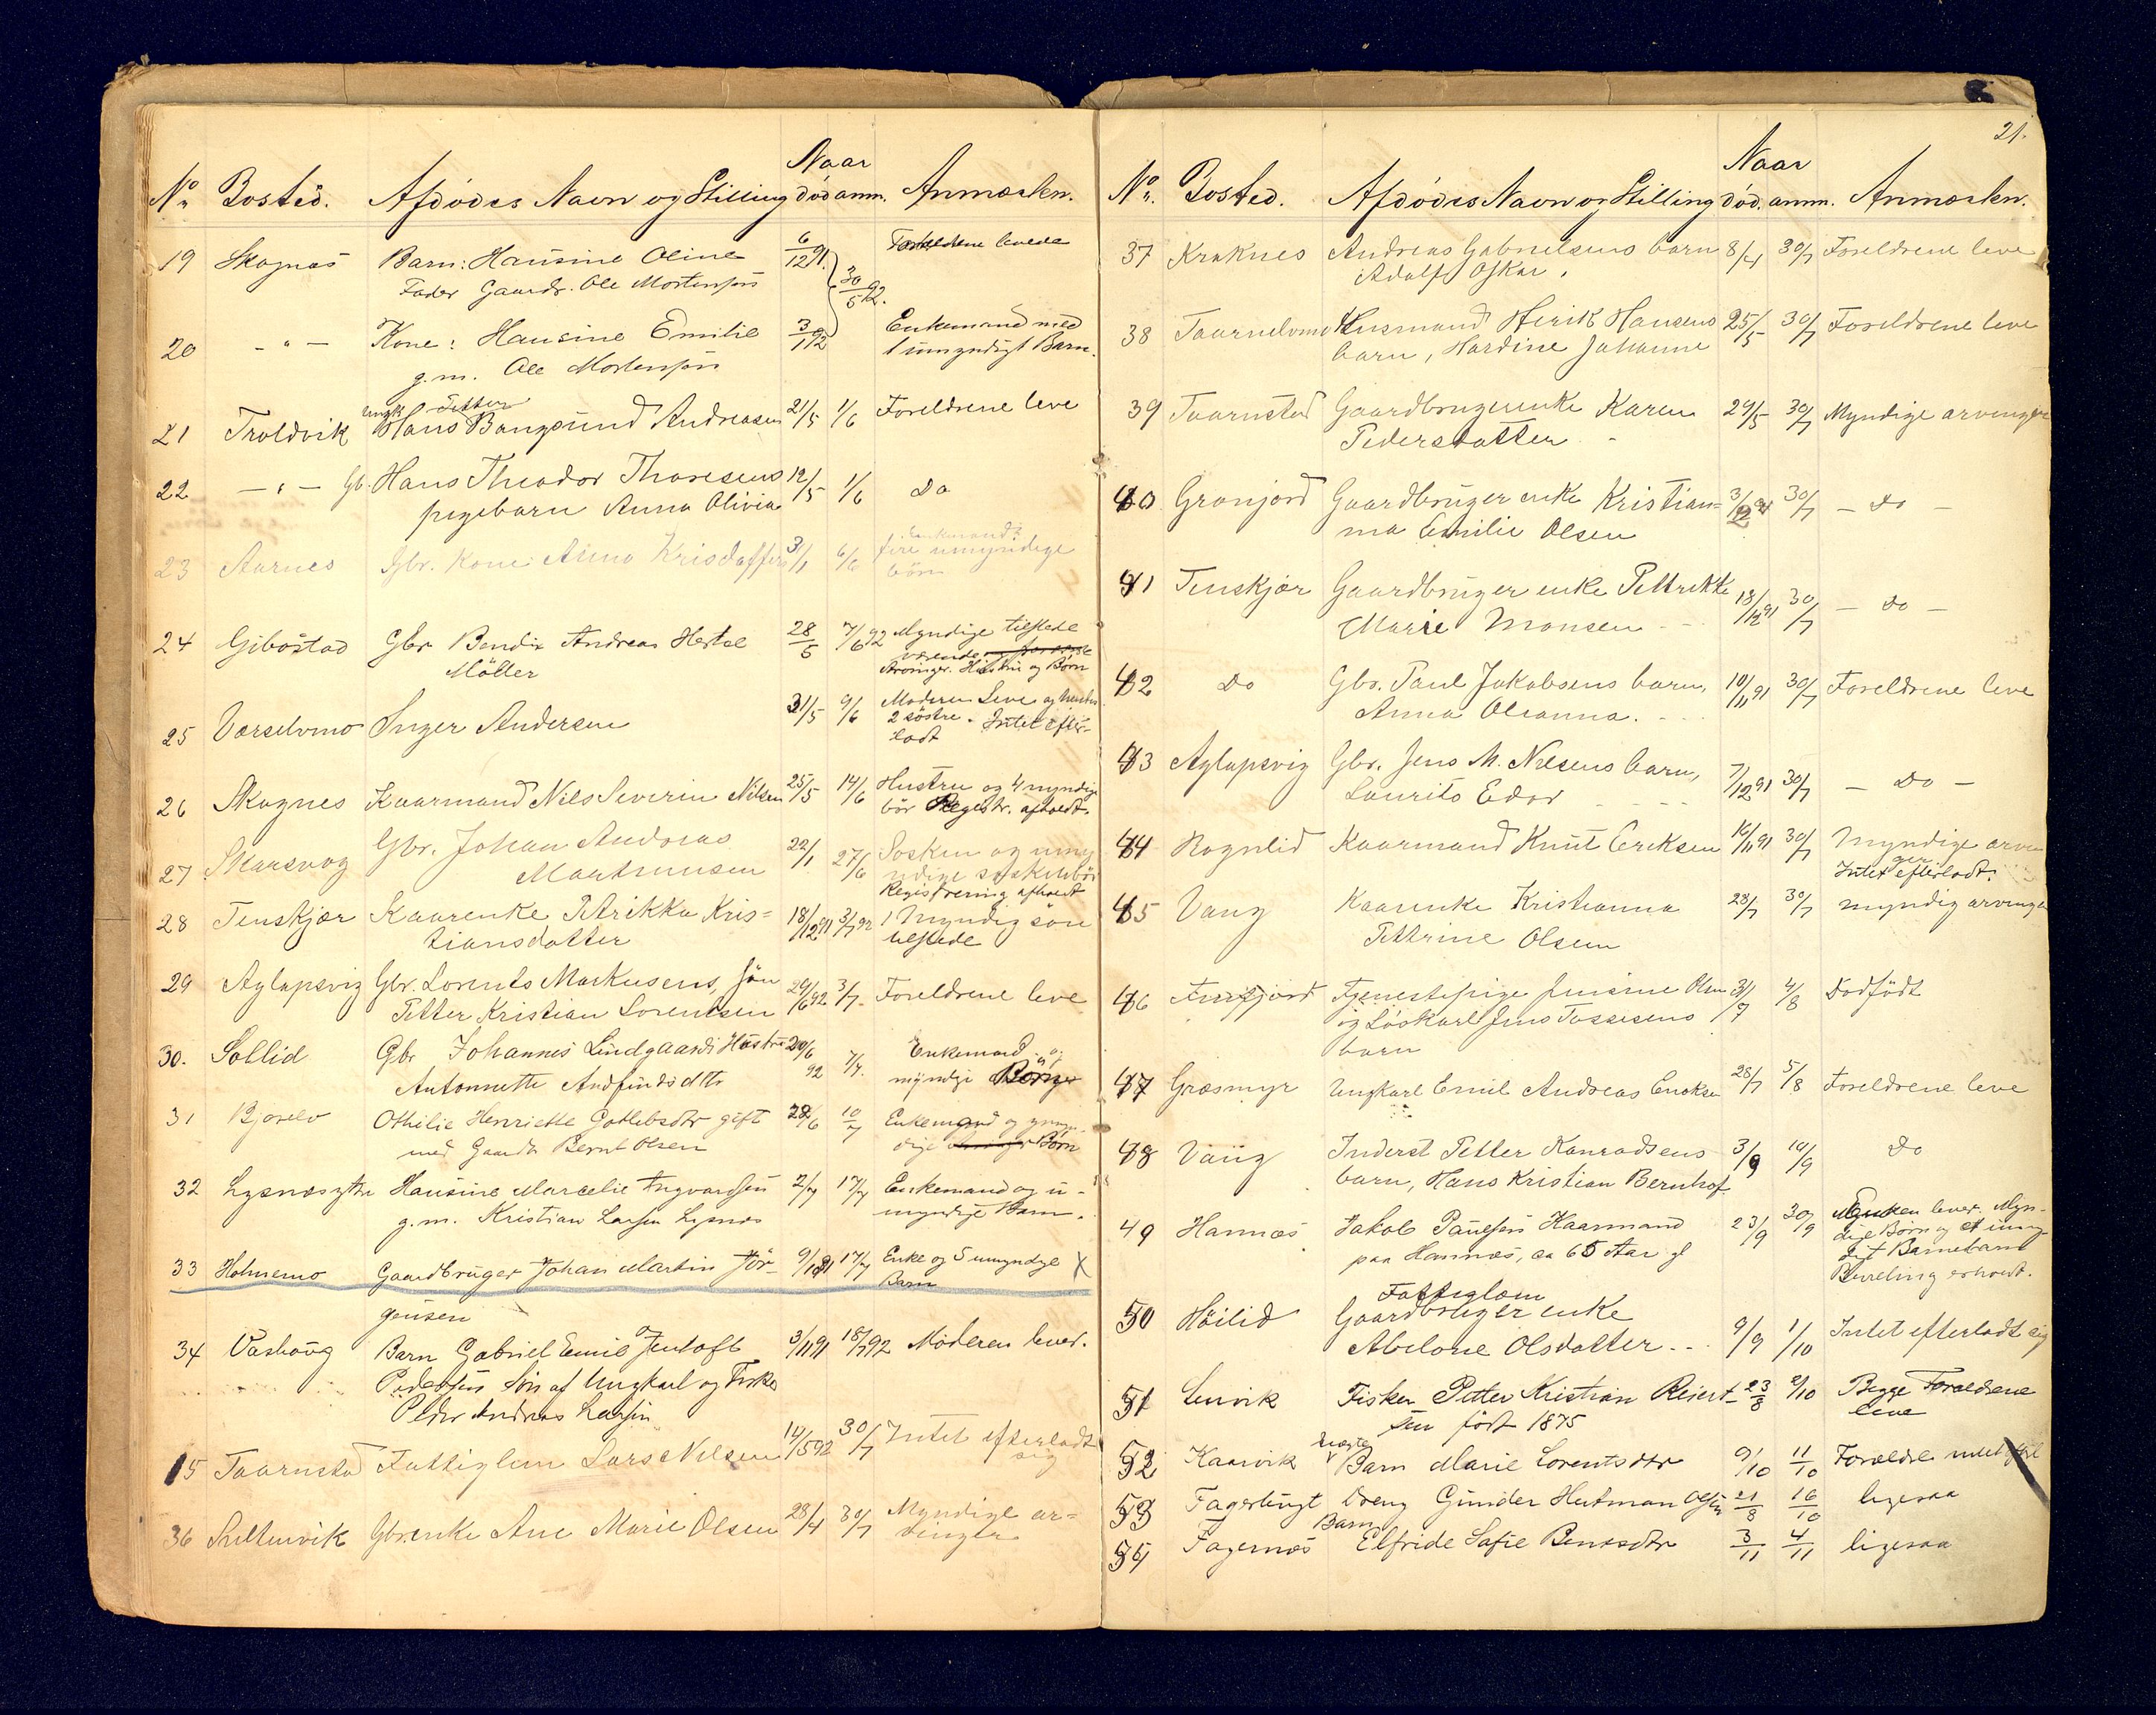 Naar
No Bosted. Afdødes Navn og Stilling død anm. Anmærkn.
19 Skognæs Barn: Hansine Oline 6/12 91. Forældrene levede
Fader Gaardr. Ole Mortensen 30/5 92.
20 - " - Kone: Hansine Emilie 3/1 92 Enkemand med
g.m. Ole Mortensen 1 umyndigt Barn.
Ungk Petter
21 Troldvik Hans Bangsund Andreasen 21/5 1/6 Foreldrene leve
22 - " - Gb. Hans Theodor Thoresens 12/5 1/6 Do
pigebarn Anna Olivia
23 Aarnes Gbr. Kone Anna Kristoffers 3/1 6/6 fire umyndige
børn
24 Gibostad Gbr Bendix Andreas Hertel 28/5 7/6 92 Myndige tilstede
Møller værende
Arvinger. Hustru og Børn
25 Vorselvmo Inger Andersen 31/5 9/6 Moderen Leve og
2 søstre. Intet efter-
ladt
26 Skognes Kaarmand Nils Severin Nilsen 25/5 14/6 Hustru og 4 myndige
bør Registr. afholdt.
27 Skarsvog Gbr. Johan Andreas 22/1 27/6 Søsken og umy
Martinusen ndige søskenbør
Registrering afholdt
28 Tenskjær Kaarenke Petrikka Kris= 18/12 91 3/7 92 1 Myndig søn
tiansdatter tilstede
29 Aglapsvig Gbr. Lorents Markusens, søn 29/6 92 3/7 Foreldrene leve
Petter Kristian Lorentsen
30. Sollid Gbr Johannes Lindgaards Hustru 20/6 92 7/7. Enkemand og
Antonnette Andfindsdtr myndige Børn
31 Bjorelv Othilie Henriette Gotlebsdtr gift 28/6 10/7 Enkemand og umyn-
med Gaardbr Bernt Olsen dige Børn
32 Lysnæsytre Hansine Marcelie Ingvardsen 2/7 17/7 Enkemand og u-
g.m. Kristian Larsen Lysnæs myndige Barn.
33 Holmemo Gaardbruger Johan Martin Jör- 9/10 91 17/7 Enke og 5 umyndge X
Barn
gensen
34 Vashaug Barn Gabriel Emil Jentoft 3/11 91 18/7 92 Moderen lever.
Pedersen Søn af Ungkarl og Fisker
Peder Andreas Larsen
15 Taarnstad Fattiglem Lars Nilsen 14/5 92 30/7 Intet efterladt
sig
36 Sultenvik Gbr.enke Ane Marie Olsen 28/4 30/7 Myndige ar=
vinger
21.
Naar
No. Bosted. Afdødes Navn og Stilling død. anm. Anmærkn.
37 Kraknes Andreas Gabrielsens barn 8/4 30/7 Foreldrene leve
Adolf Oskar.
38 Taarnelvmo Husmand Henrik Hansens 25/5 30/7 Foreldrene leve
barn, Hardine Johanne
39 Taarnstad Gaardbrugerenke Karen 29/5 30/7 Myndige arvinger
Pedersdatter
40 Grønjord Gaardbruger enke Kristian= 3/12 91 30/7 - Do -
na Emilie Olsen
41 Tenskjær Gaardbruger enke Petrikke 18/12 91 30/7 - Do -
Marie Monsen
42 Do Gbr. Paul Jakobsens barn, 10/11 91 30/7 Foreldrene leve
Anna Oleanna.
43 Aglapsvig Gbr. Jens M. Nilsens barn, 7/12 91 30/7 - Do -
Laurits Edor
44 Rognlid Kaarmand Knut Eriksen 16/11 91 30/7 Myndige arvin
ger
Intet efterladt.
45 Vang Kaarenke Kristianna 28/7 30/7 myndig arvinger
Pettrine Olsen
46 Finfjord Tjenestepige Jensine Olsen 31/7 4/8 Dødfødt
og Løskarl Jens Tossesens
barn
47 Græsmyr Ungkarl Emil Andreas Enoksen 28/7 5/8 Foreldrene leve
48 Vang Inderst Petter Konradsens 3/9 10/9 Do
barn, Hans Kristian Bernhof
49 Hannæs Jakob Paulsen Kaarmand 23/9 30/9 Enken lever. Myn-
paa Hannæs, ca 65 Aar gl dige Børn og et umyn
digt Barnebarn
Fattiglem
50 Høilid Gaardbruger enke
Abelone Olsdatter 9/9 1/10 Intet efterladt sig
51 Lenvik Fisker Petter Kristian Reiert- 23/8 2/10 Begge Forældrene
sen født 1875 leve
52 Kaarvik Barn Marie Lorentsdtr 9/10 11/10 Forældre
53 Fagerlingt Dreng Gunder Hutman Olsen 21/8 16/10 ligesaa
Barn
54 Fagernæs Elfride Sofie Bensdtr 3/11 4/11 ligesaa